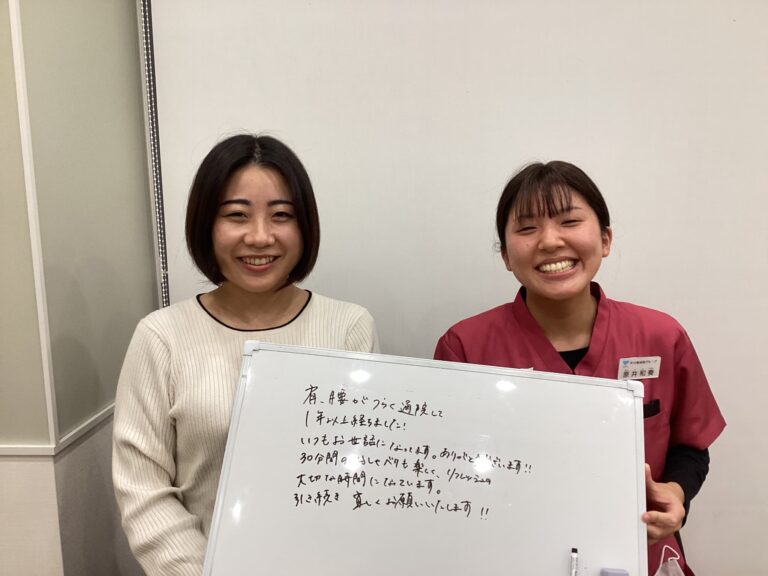 肩、腰がつらく通院して
1年以上経ちました!
いつもお世話になってます。ありがとうございます!!
30分間のおしゃべりも楽しく、リフレッシュの
大切な時間になっています。
引き続き 宜しくお願いいたします!!